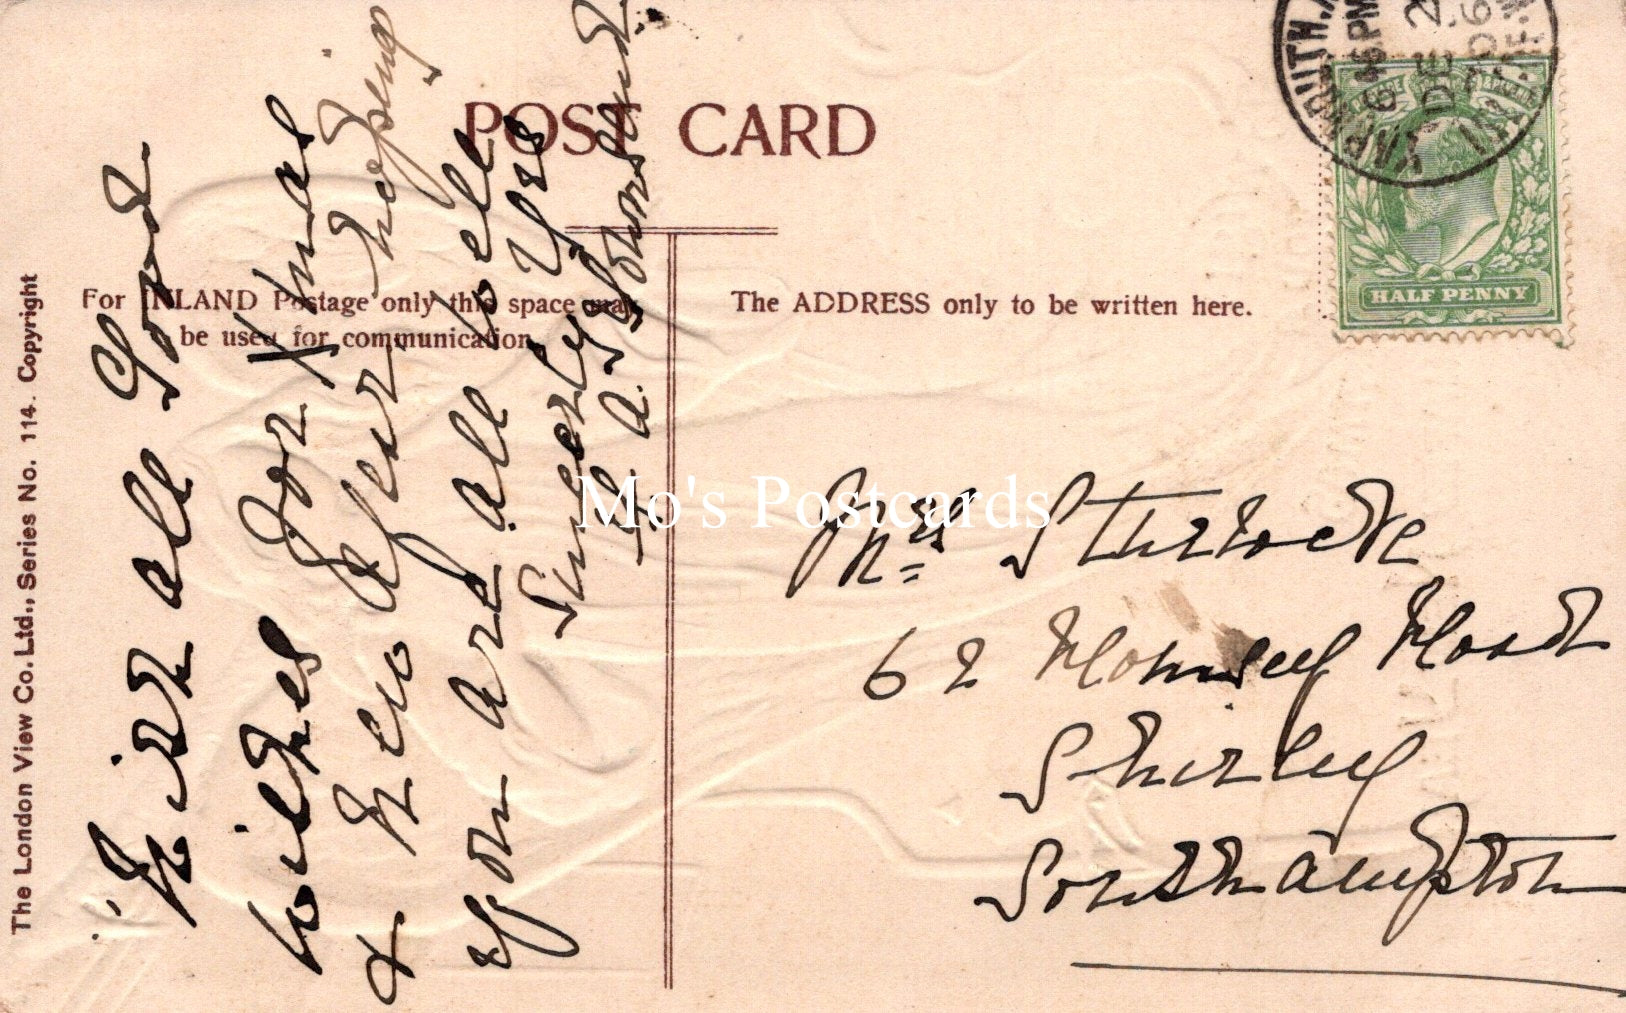 POST CARD
For INLAND Postage only this space may
be used for communication
The ADDRESS only to be written here.
The London View Co. Ltd., Series No. 114. Copyright
HALF PENNY
YARMOUTH
6 PM
DE 2
06
With all Good
wishes for Xmas
& New Year hoping
you are all well
Sincerely Yrs
Mrs
62 Road
Shirley
Southampton
Mo's Postcards